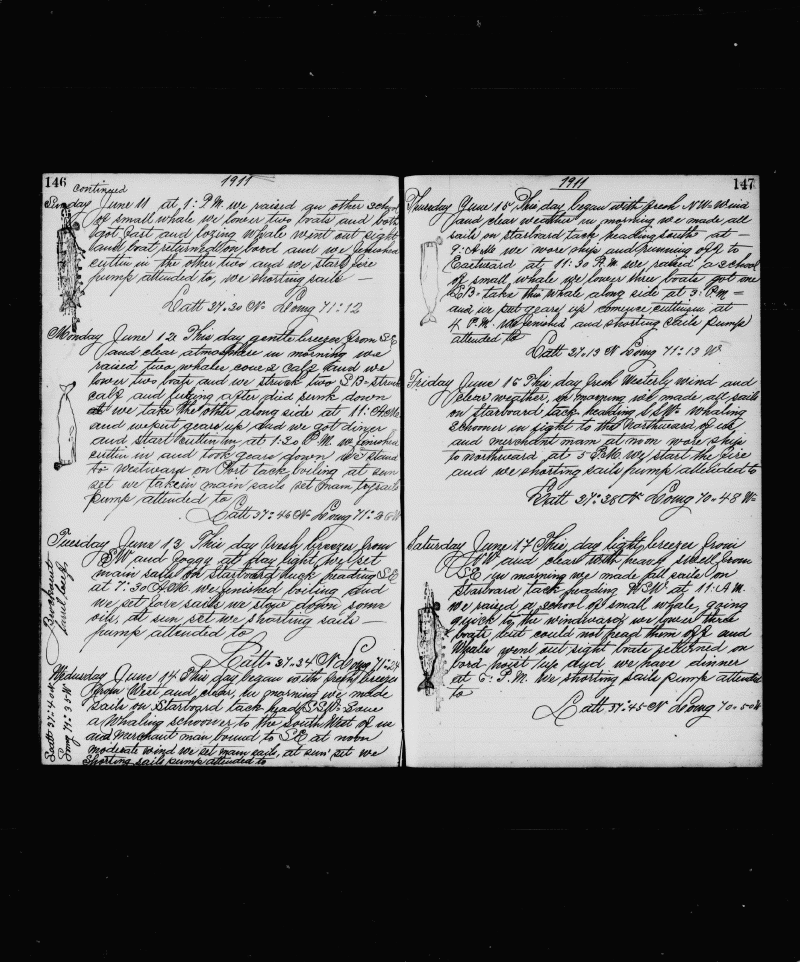 146
continued
1911
Sunday June 11 at 1: P.M. we raised an other school
of small whale we lower two boats and both
got fast and lozing Whale went out sight
and boat returned on bood and we finished
cuttin in the other two and we start fire
pump attended to, we shorting sails —
Latt 37:30 N Long 71:12
Monday June 12 This day gentle breezes from SE
and clear atmosphere in morning we
raised two whales cow & calf and we
lower two boats and we struck two LB struck
calf and after did sunk down
we take the other along side at 11: A.M.
and we put gears up and we got dinner
and start cuttin in at 1:20 P.M. we finished
cuttin in and took gears down we stand
to westward on Port tack boiling at sun
set we take in main sails set main try sails
pump attended to
Latt 37:46 N Long 71:26 W
Tuesday June 13 This day fresh breezes from
SW and foggy at day light we set
main sails on starboard tack heading SE
at 7:30 A.M. we finished boiling and
we set fore sails we stow down some
oils, at sun set we shorting sails —
pump attended to
Latt 37:34 N Long 71:24
barrel beef
Wedusday June 14 This day began with fresh breezes
from West and clear, in morning we made
sails on Starboard tack head SSW Saw
a Whaling schooner to the South West of us
and Merchant man bound to SE at noon
moderate wind we set main sails, at sun set we
Shorting sails pump attended to
Latt 37:40
Long 71:35 W
1911
147
Thursday June 15 This day began with fresh NW Wind
and clear weather in morning we made all
sails on starboard tack heading south at —
9: A.M. we wore ship and running off to
Eastward at 11:30 A.M. we raised a school
of small whale we lower three boats got one
LB take this whale along side at 3: P.M. =
and we put gears up comence cutting in at
4 P.M. We finished and shorting Sails pump
attended to
Latt 37:13 N Long 71:13 W
Friday June 16 This day fresh Westerly wind and
clear weather, in morning we made all sails
on starboard tack heading SSW Whaling
schooner in sight to the Northward of us,
and merchant mam at noon wore ship
to northward at 5 P.M. We start the fire
and we shorting sails pump attended to
Latt 37:28 N Long 70:48 W
Saturday June 17 This day light breezes from
NW and clear with heavy swell from
SE in morning we made all sails on
starboard tack heading WSW at 11: A.M.
we raised a school of small whale, going
quick to the windward we lower three
boats but could not head them off and
Whales went out sight boats returned on
bord hoist up and we have dinner
at 6: P.M. We shorting sails pump attended
to
Latt 37:45 N Long 70:50 W